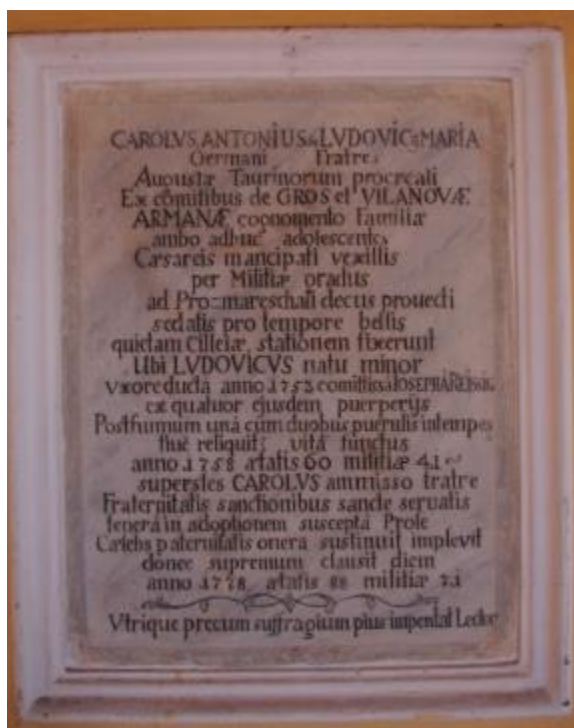 CAROLVS ANTONIUS & LVDOVIC9 MARIA
Germani Fratres
Augustæ Taurinorum procreati
Ex comitibus de GROS et VILANOVÆ
ARMANÆ cognomento Familiæ
ambo adhuc adolescentes
Cæsareis mancipati vexillis
per Militiæ gradus
ad Pro=mareschali decus provecti
sedatis pro tempore bellis
quidam Cilleiæ, stationem fixerunt
Ubi LVDOVICVS natu minor
Vxore ducta anno 1753 comitissa IOSEPHA
ex quatuor ejusdem puerperijs
Posthumum unà cum duobus puerulis intempes
tiuè reliquit; vitâ functus
anno 1758 ætatis 60 militiæ 41
superstes CAROLVS ammisso fratre
Fraternitatis sanctionibus sancte servatis
tenera in adoptionem suscepta Prole
Cælebs paternitatis onera sustinuit implevit
donec supremum clausit diem
anno 1778 ætatis 88 militiæ 71
Vtrique precum suffragium pius impendat Lector